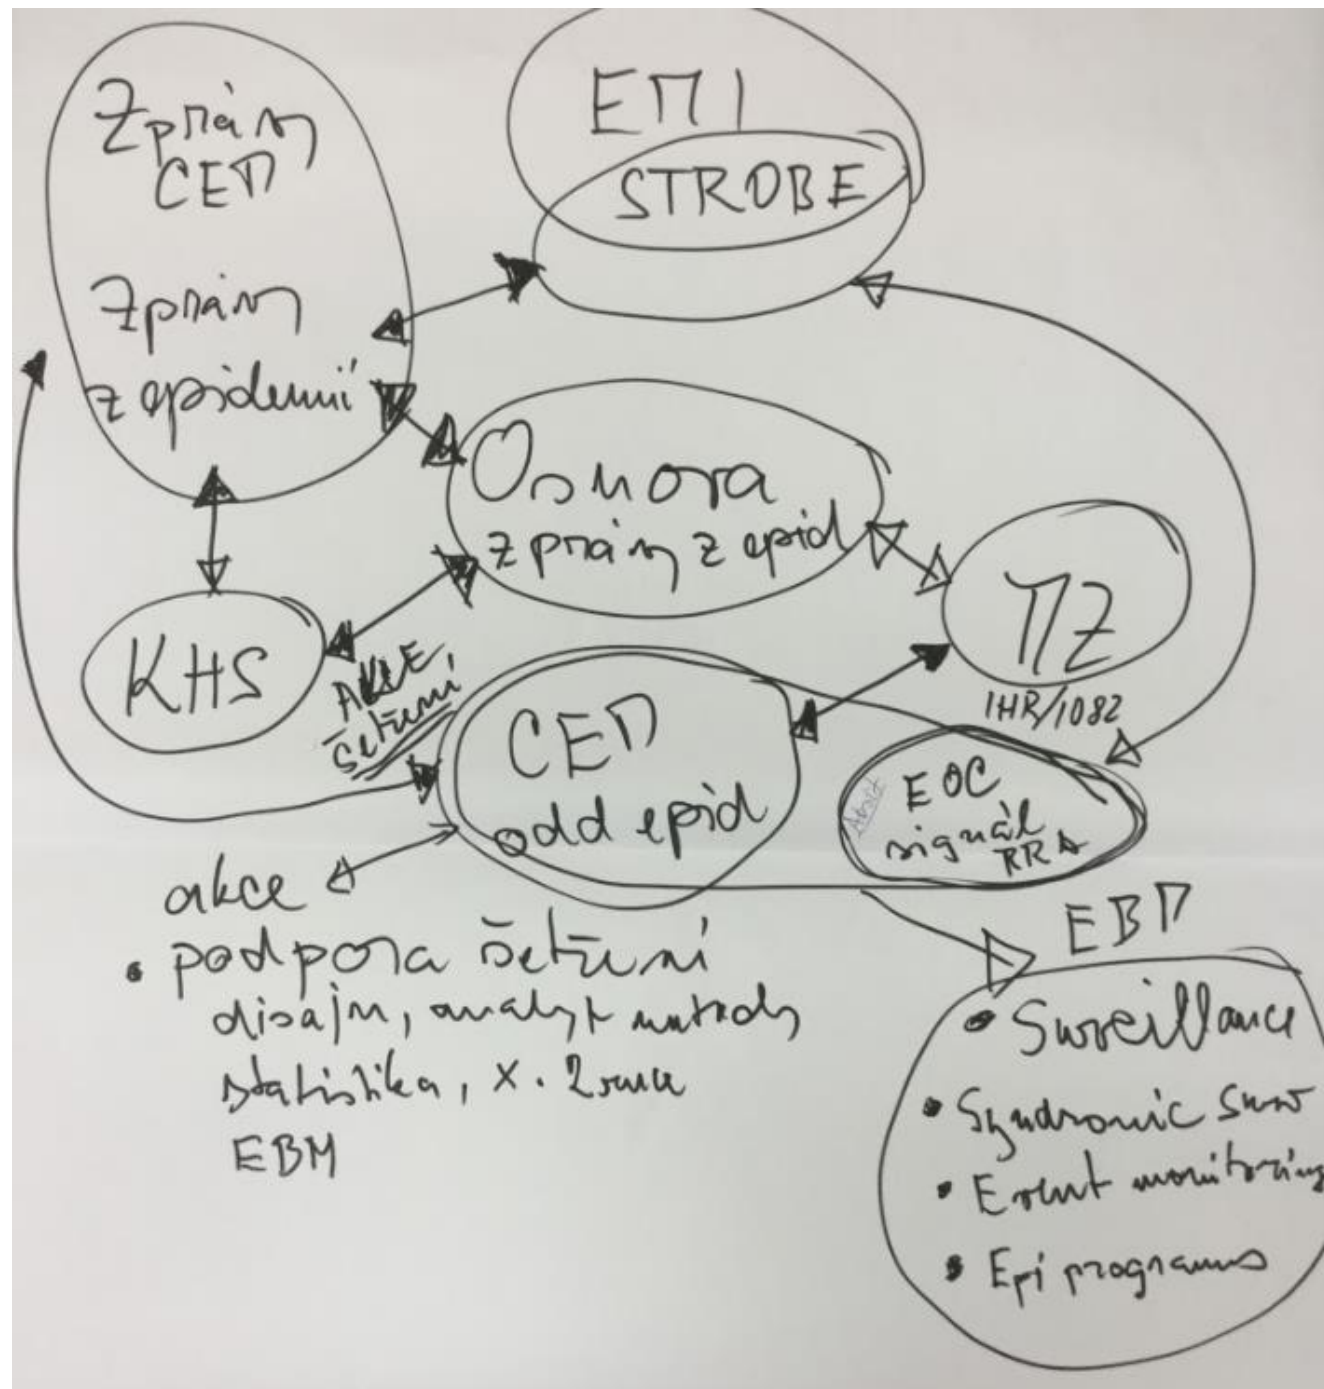 Zprávy
CEM
Zprávy
z epidemií
EMI
STROBE
Osnova
zprávy z epid
MZ
IHR/1082
KHS
AKCE,
šetření
CEM
odd epid
EOC
signál
RRA
akce
• podpora šetření
disajn, analyt metody
statistika, X.
EBM
EBM
• Surveillance
• Syndromic surv
• Event monitoring
• Epi programs